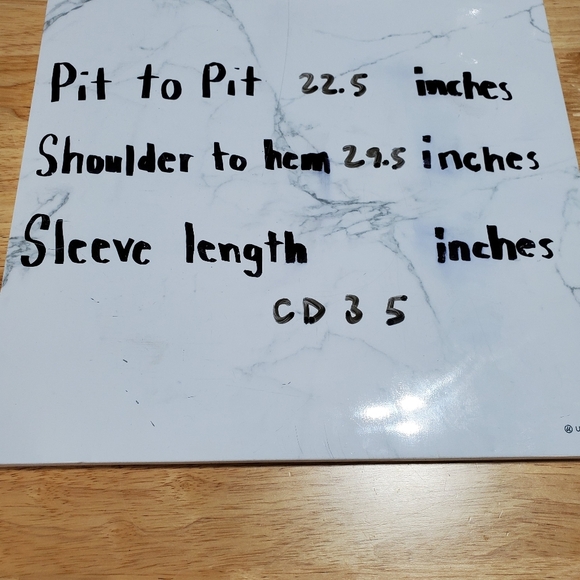 Pit to Pit 22.5 inches
Shoulder to hem 29.5 inches
Sleeve length inches
CD 35